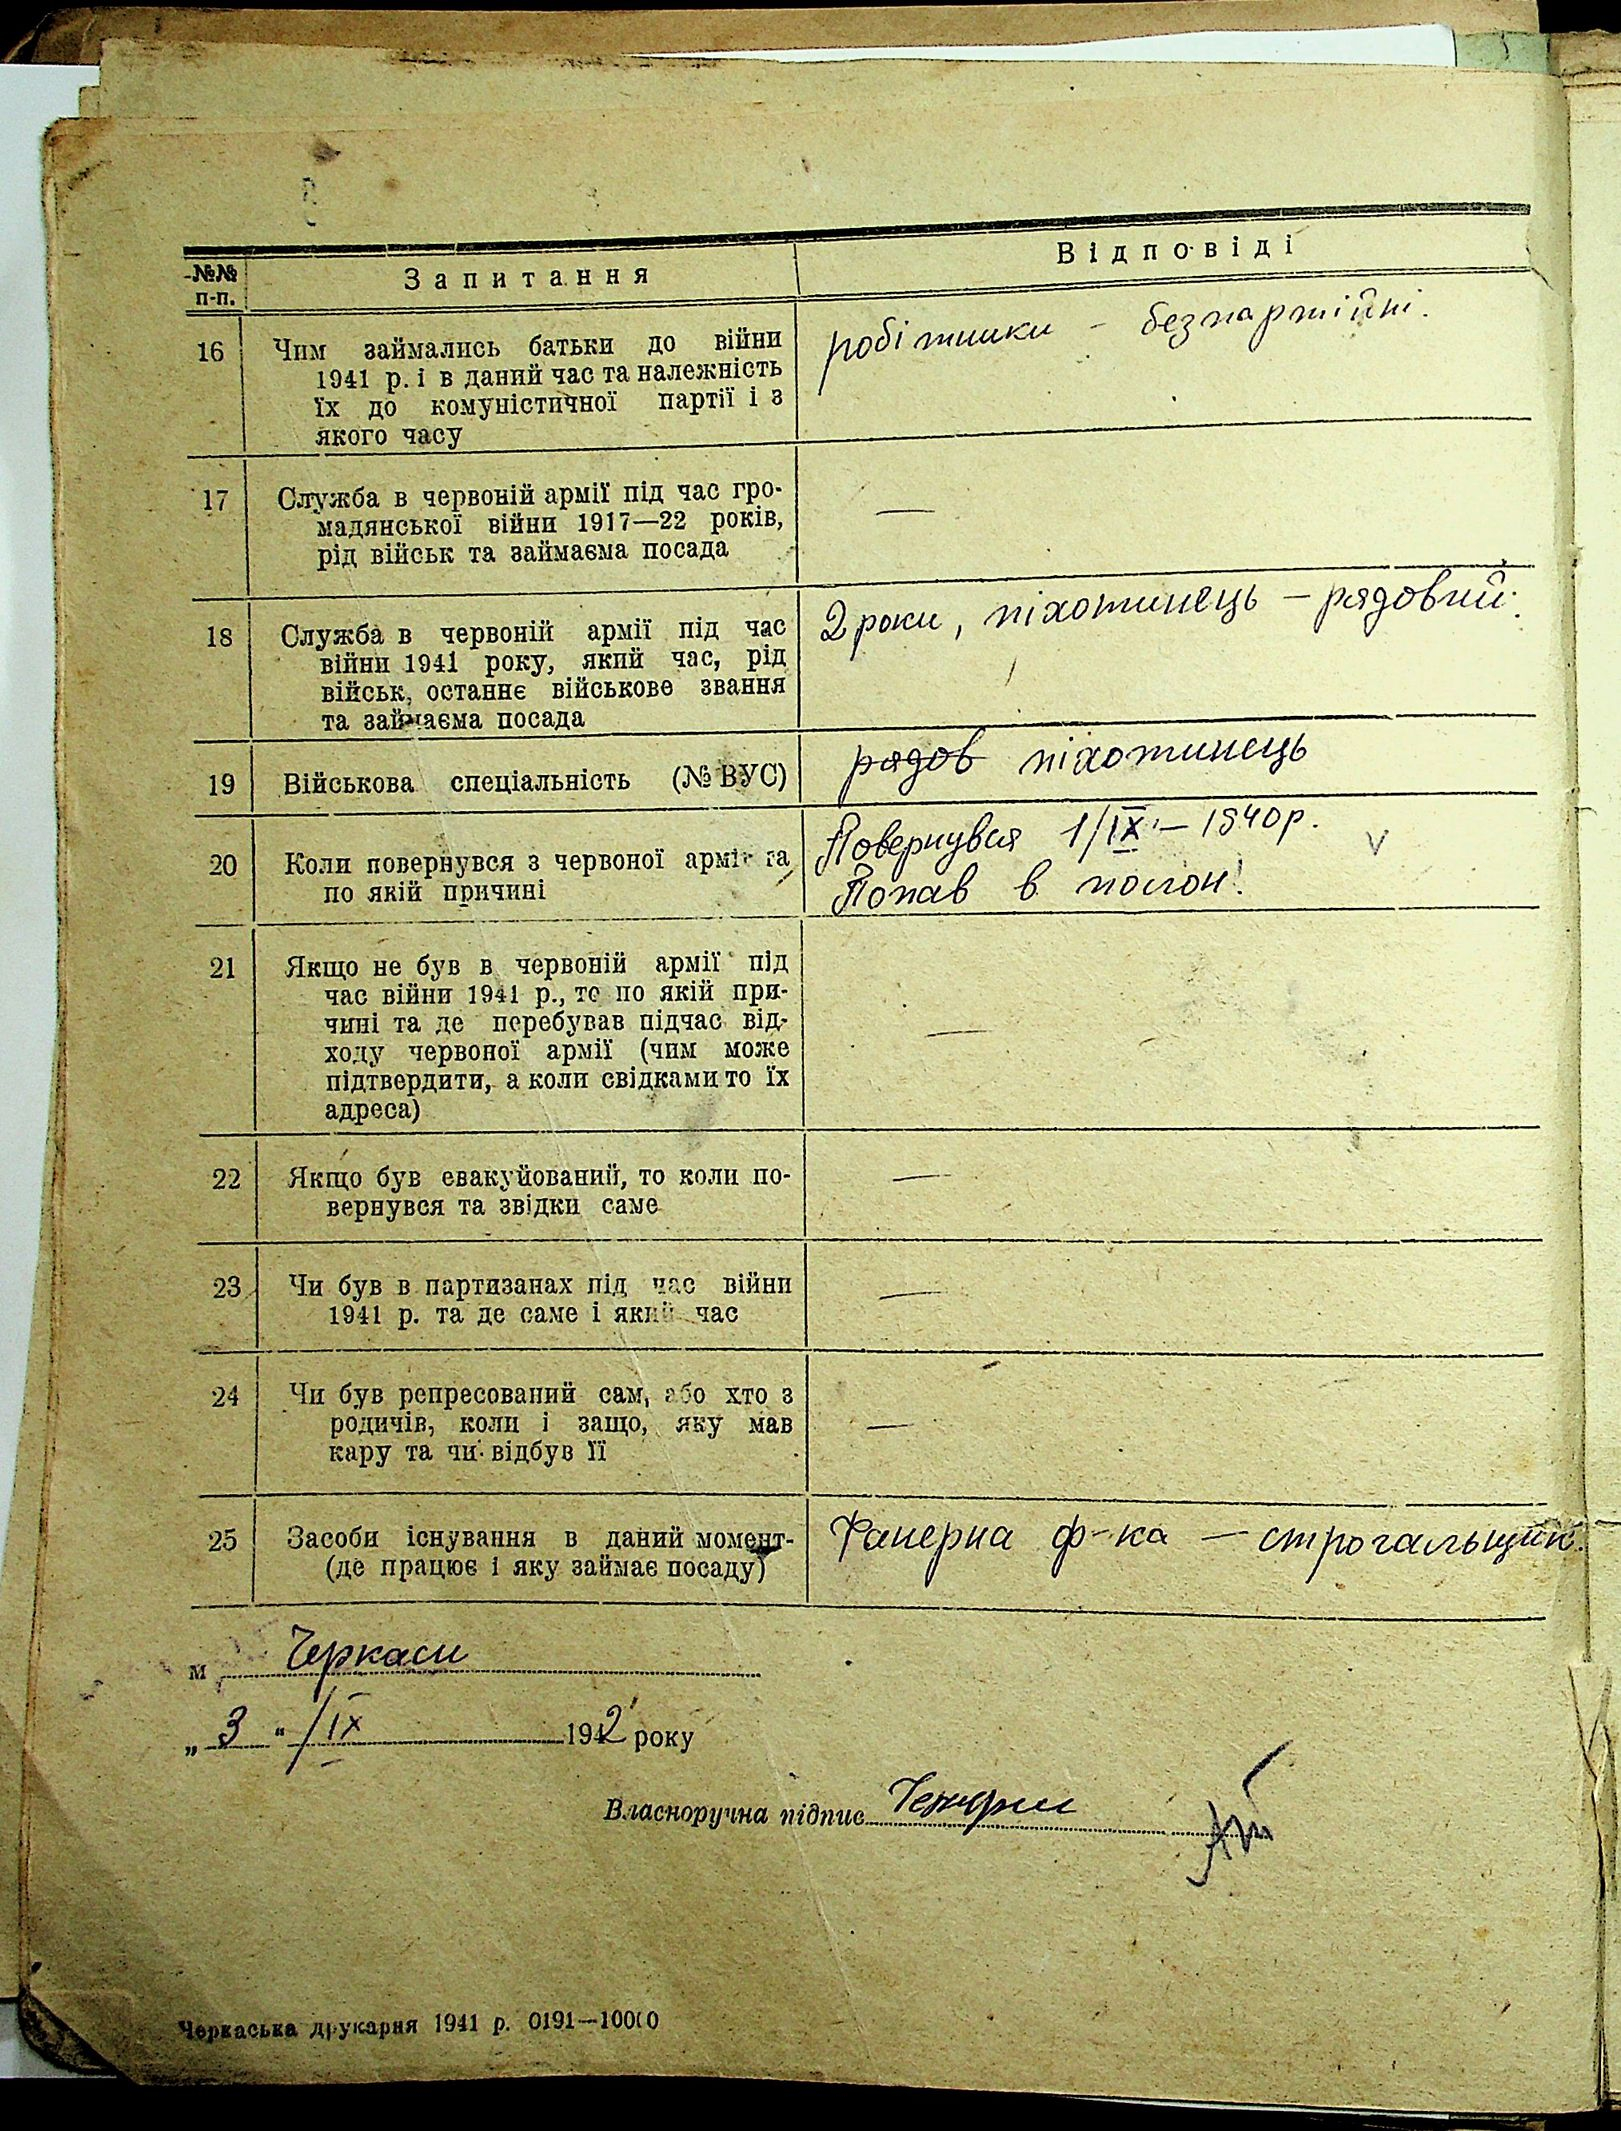 №№ п-п. Запитання Відповіді
16 Чим займались батьки до війни робітники - безпартійні.
1941 р. і в даний час та належність
їх до комуністичної партії і з
якого часу
17 Служба в червоній армії під час гро-
мадянської війни 1917—22 років, —
рід військ та займаєма посада
18 Служба в червоній армії під час 2 роки, піхотинець - рядовий.
війни 1941 року, який час, рід
військ, останнє військове звання
та займаєма посада
19 Військова спеціальність (№ ВУС) рядов піхотинець
20 Коли повернувся з червоної армії та Повернувся 1/IX - 1940 р. V
по якій причині Попав в полон.
21 Якщо не був в червоній армії під
час війни 1941 р., то по якій при-
чині та де перебував підчас від- —
ходу червоної армії (чим може
підтвердити, а коли свідками то їх
адреса)
22 Якщо був евакуйований, то коли по- —
вернувся та звідки саме
23 Чи був в партизанах під час війни —
1941 р. та де саме і який час
24 Чи був репресований сам, або хто з
родичів, коли і защо, яку мав —
кару та чи відбув її
25 Засоби існування в даний момент- Фанерна ф-ка — строгальщик.
(де працює і яку займає посаду)
м Черкаси
„ 3 " /IX 1942 року
Власноручна підпис
Черкаська друкарня 1941 р. 0191—10000